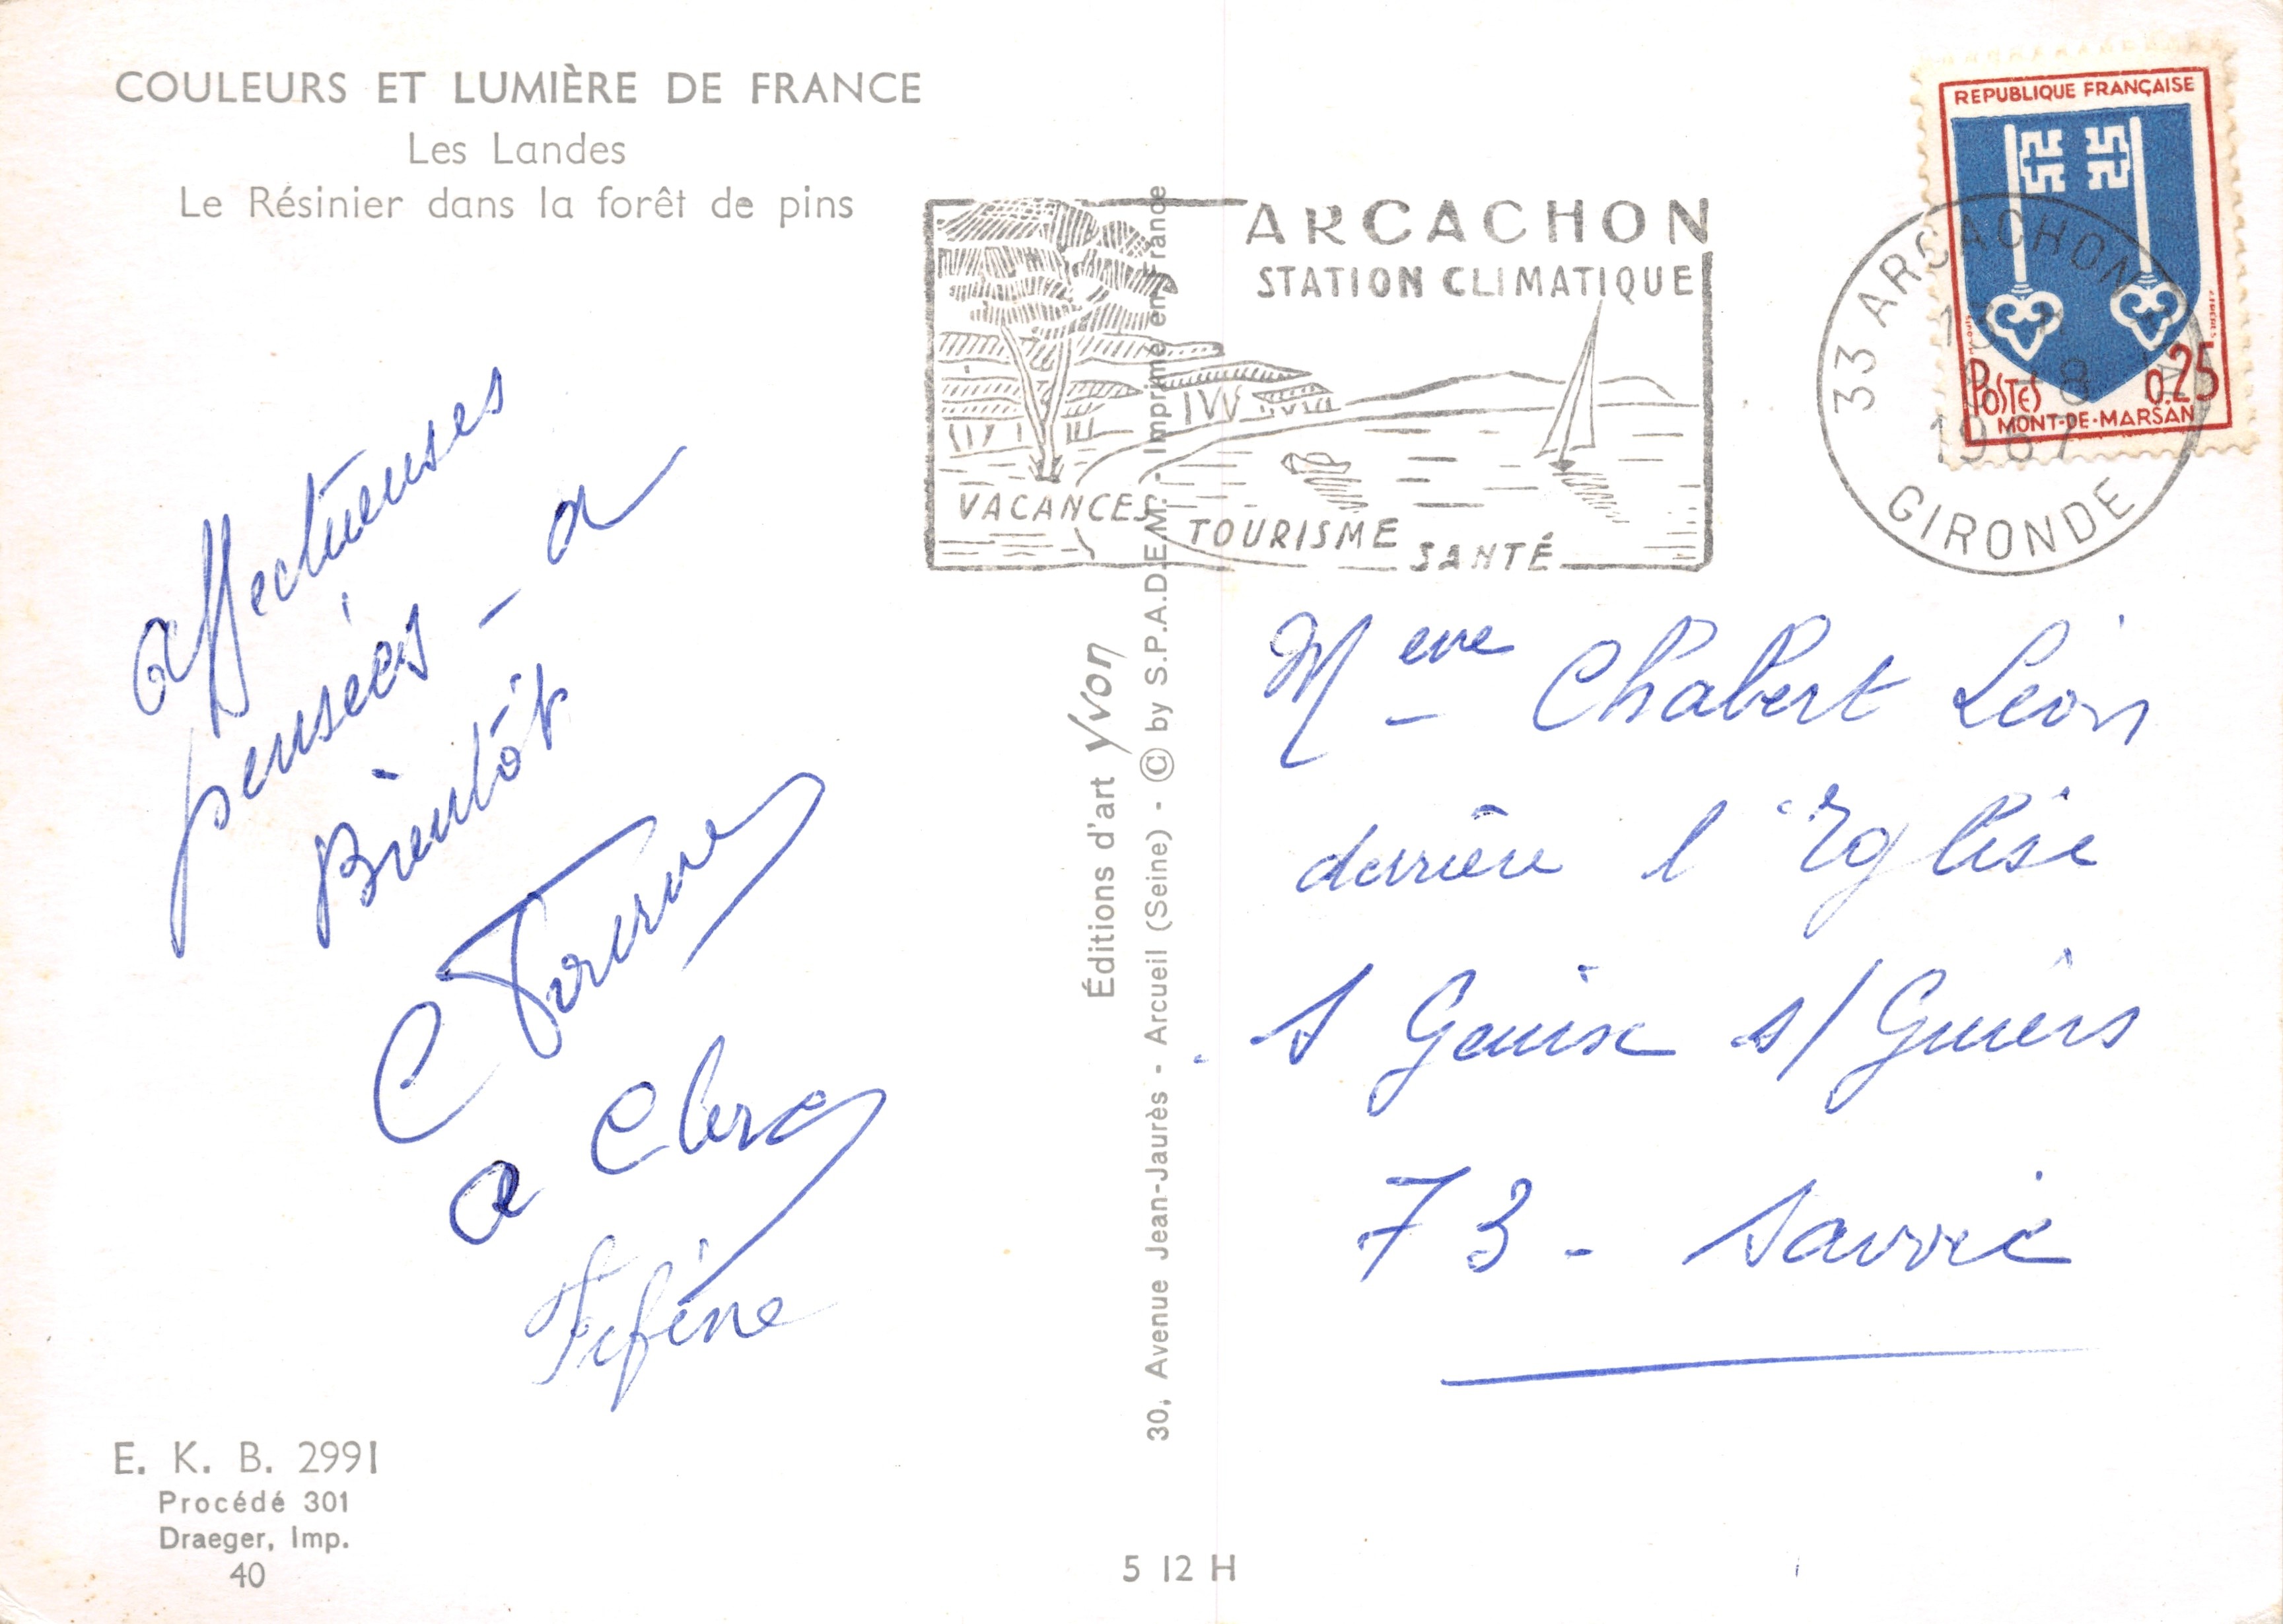 COULEURS ET LUMIÈRE DE FRANCE
Les Landes
Le Résinier dans la forêt de pins
affectueuses
pensées - a
Bientôt
C
a Clerc
Fifine
E. K. B. 2991
Procédé 301
Draeger, Imp.
40
Éditions d'art Yvon
30, Avenue Jean-Jaurès - Arcueil (Seine) - © by S.P.A.D.E.M. - Imprimé en France
5 12 H
ARCACHON
STATION CLIMATIQUE
VACANCES
TOURISME
SANTÉ
33 ARCACHON
1967
GIRONDE
REPUBLIQUE FRANÇAISE
POSTES
0.25
MONT-DE-MARSAN
M eve Chabert Léon
derrière l'Eglise
S Genix s/ Guiers
73 - Savoie